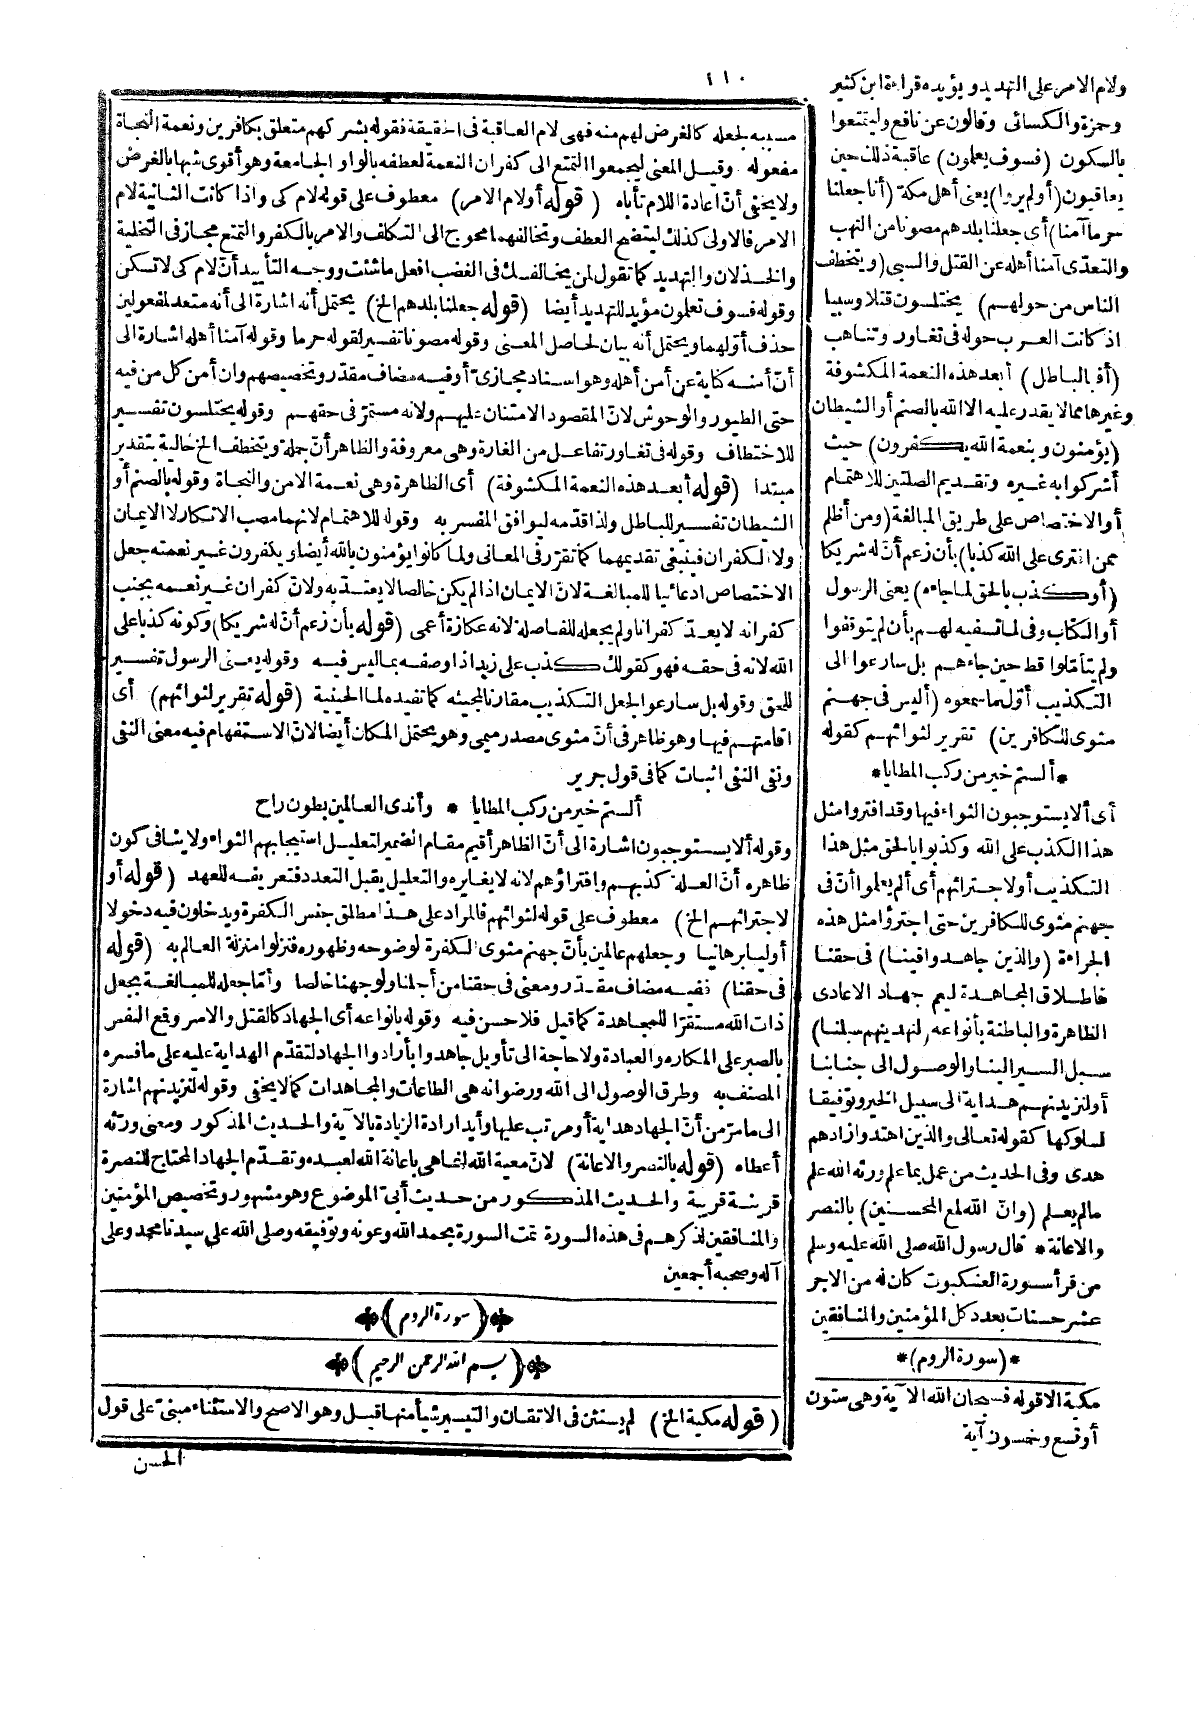 ١١٠
ولام الامر على التهديد ويؤيده قراءة ابن كثير
وحمزة والكسائى وقالون عن نافع وليتمتعوا
بالسكون (فسوف يعلمون) عاقبة ذلك حين
يعاقبون (أولم يروا) يعنى أهل مكة (أنا جعلنا
حرما آمنا) أى جعلنا بلدهم مصونا من النهب
والتعدّى آمنا أهله عن القتل والسبى (ويتخطف
الناس من حولهم) يختلسون قتلا وسبيا
اذ كانت العرب حوله فى تغاور وتناهب
(أفبالباطل) أبعد هذه النعمة المكشوفة
وغيرها مما لا يقدر عليه الا الله بالصنم أو الشيطان
(يؤمنون وبنعمة الله يكفرون) حيث
أشركوا به غيره وتقديم الصلتين للاهتمام
أو الاختصاص على طريق المبالغة (ومن أظلم
ممن افترى على الله كذبا) بأن زعم أنّ له شريكا
(أو كذب بالحق لما جاءه) يعنى الرسول
أو الكتاب وفى لما تسفيه لهم بأن لم يتوقفوا
ولم يتأمّلوا قط حين جاءهم بل سارعوا الى
التكذيب أوّل ما سمعوه (أليس فى جهنم
مثوى للكافرين) تقرير لثوائهم كقوله
*ألستم خير من ركب المطايا*
أى ألا يستوجبون الثواء فيها وقد افتروا مثل
هذا الكذب على الله وكذبوا بالحق مثل هذا
التكذيب أو لاجترائهم أى ألم يعلموا أنّ فى
جهنم مثوى للكافرين حتى اجترؤا مثل هذه
الجراءة (والذين جاهدوا فينا) فى حقنا
فاطلاق المجاهدة ليعم جهاد الاعادى
الظاهرة والباطنة بأنواعه (لنهدينهم سبلنا)
سبل السير الينا والوصول الى جنابنا
أو لنزيدنهم هداية الى سبيل الخير وتوفيقا
لسلوكها كقوله تعالى والذين اهتدوا زادهم
هدى وفى الحديث من عمل بما علم ورثه الله علم
مالم يعلم (وانّ الله لمع المحسنين) بالنصر
والاعانة * قال رسول الله صلى الله عليه وسلم
من قرأ سورة العنكبوت كان له من الاجر
عشر حسنات بعدد كل المؤمنين والمنافقين
*(سورة الروم)*
مكية الا قوله فسبحان الله الآية وهى ستون
أو تسع وخمسون آية
مسببه لجعله كالغرض لهم منه فهى لام العاقبة فى الحقيقة فقوله بشركهم متعلق بكافرين ونعمة النجاة
مفعوله وقيل المعنى ليجمعوا التمتع الى كفران النعمة لعطفه بالواو الجامعة وهو أقوى شبها بالغرض
ولا يخفى أنّ اعادة اللام تأباه (قوله أو لام الامر) معطوف على قوله لام كى واذا كانت الثانية لام
الامر فالاولى كذلك ليتضح العطف وتخالفهما محوج الى التكلف والامر بالكفر والتمتع مجاز فى التخلية
والخذلان والتهديد كما تقول لمن يخالفك فى الغضب افعل ما شئت ووجه التأييد أنّ لام كى لا تسكن
وقوله فسوف تعلمون مؤيد للتهديد أيضا (قوله جعلنا بلدهم الخ) يحتمل أنه اشارة الى أنه متعد لمفعولين
حذف أوّلهما ويحتمل أنه بيان لحاصل المعنى وقوله مصونا تفسير لقوله حرما وقوله آمنا أهله اشارة الى
أنّ أمنه كناية عن أمن أهله وهو اسناد مجازىّ أو فيه مضاف مقدّر وتخصيصهم وان أمن كل من فيه
حتى الطيور والوحوش لانّ المقصود الامتنان عليهم ولانه مستمرّ فى حقهم وقوله يختلسون تفسير
للاختطاف وقوله فى تغاور تفاعل من الغارة وهى معروفة والظاهر أنّ جملة ويتخطف الخ حالية بتقدير
مبتدا (قوله أبعد هذه النعمة المكشوفة) أى الظاهرة وهى نعمة الامن والنجاة وقوله بالصنم أو
الشيطان تفسير للباطل ولذا قدمه ليوافق المفسر به وقوله للاهتمام لانهما مصب الانكار لا الايمان
ولا الكفران فينبغى تقديمهما كما تقرّر فى المعانى ولما كانوا يؤمنون بالله أيضا ويكفرون غير نعمته جعل
الاختصاص ادعائيا للمبالغة لانّ الايمان اذا لم يكن خالصا لا يعتدّ به ولانّ كفران غير نعمه بجنب
كفرانه لا يعدّ كفرانا ولم يجعله للفاصلة لانه عكازة أعمى (قوله بأن زعم أنّ له شريكا) وكونه كذبا على
الله لانه فى حقه فهو كقولك كذب على زيد اذا وصفه بما ليس فيه وقوله يعنى الرسول تفسير
للحق وقوله بل سارعوا لجعل التكذيب مقارنا لمجيئه كما تفيده لما الحينية (قوله تقرير لثوائهم) أى
اقامتهم فيها وهو ظاهر فى أنّ مثوى مصدر ميمى وهو يحتمل المكان أيضا لانّ الاستفهام فيه معنى النفى
ونفى النفى اثبات كما فى قول جرير
ألستم خير من ركب المطايا * وأندى العالمين بطون راح
وقوله ألا يستوجبون اشارة الى أنّ الظاهر أقيم مقام الضمير لتعليل استيجابهم الثواء ولا ينافى كون
ظاهره أنّ العلة كذبهم وافتراؤهم لانه لا يغايره والتعليل يقبل التعدد فتعريفه للعهد (قوله أو
لاجترائهم الخ) معطوف على قوله لثوائهم فالمراد على هذا مطلق جنس الكفرة ويدخلون فيه دخولا
أوليا برهانيا وجعلهم عالمين بأنّ جهنم مثوى الكفرة لوضوحه وظهوره فنزلوا منزلة العالم به (قوله
فى حقنا) ففيه مضاف مقدّر ومعنى فى حقنا من أجلنا ولوجهنا خالصا وأمّا جعله للمبالغة بجعل
ذات الله مستقرّا للمجاهدة كما قيل فلا حسن فيه وقوله بأنواعه أى الجهاد كالقتل والاسر وقع النفس
بالصبر على المكاره والعبادة ولا حاجة الى تأويل جاهدوا بأرادوا الجهاد لتقدّم الهداية عليه على ما فسره
المصنف به وطرق الوصول الى الله ورضوانه هى الطاعات والمجاهدات كما لا يخفى وقوله لنزيدنهم اشارة
الى ما مرّ من أنّ الجهاد هداية أو مرتب عليها وأيد ارادة الزيادة بالآية والحديث المذكور ومعنى ورثه
أعطاه (قوله بالنصر والاعانة) لانّ معية الله انما هى باعانة الله لعبده وتقدّم الجهاد المحتاج للنصرة
قرينة قريبة والحديث المذكور من حديث أبىّ الموضوع وهو مشهور وتخصيص المؤمنين
والمنافقين لذكرهم فى هذه السورة تمت السورة بحمد الله وعونه وتوفيقه وصلى الله على سيدنا محمد وعلى
آله وصحبه أجمعين
(سورة الروم)
(بسم الله الرحمن الرحيم)
(قوله مكية الخ) لم يستثن فى الاتقان والتيسير شيأ منها قيل وهو الاصح والاستثناء مبنىّ على قول
الحسن